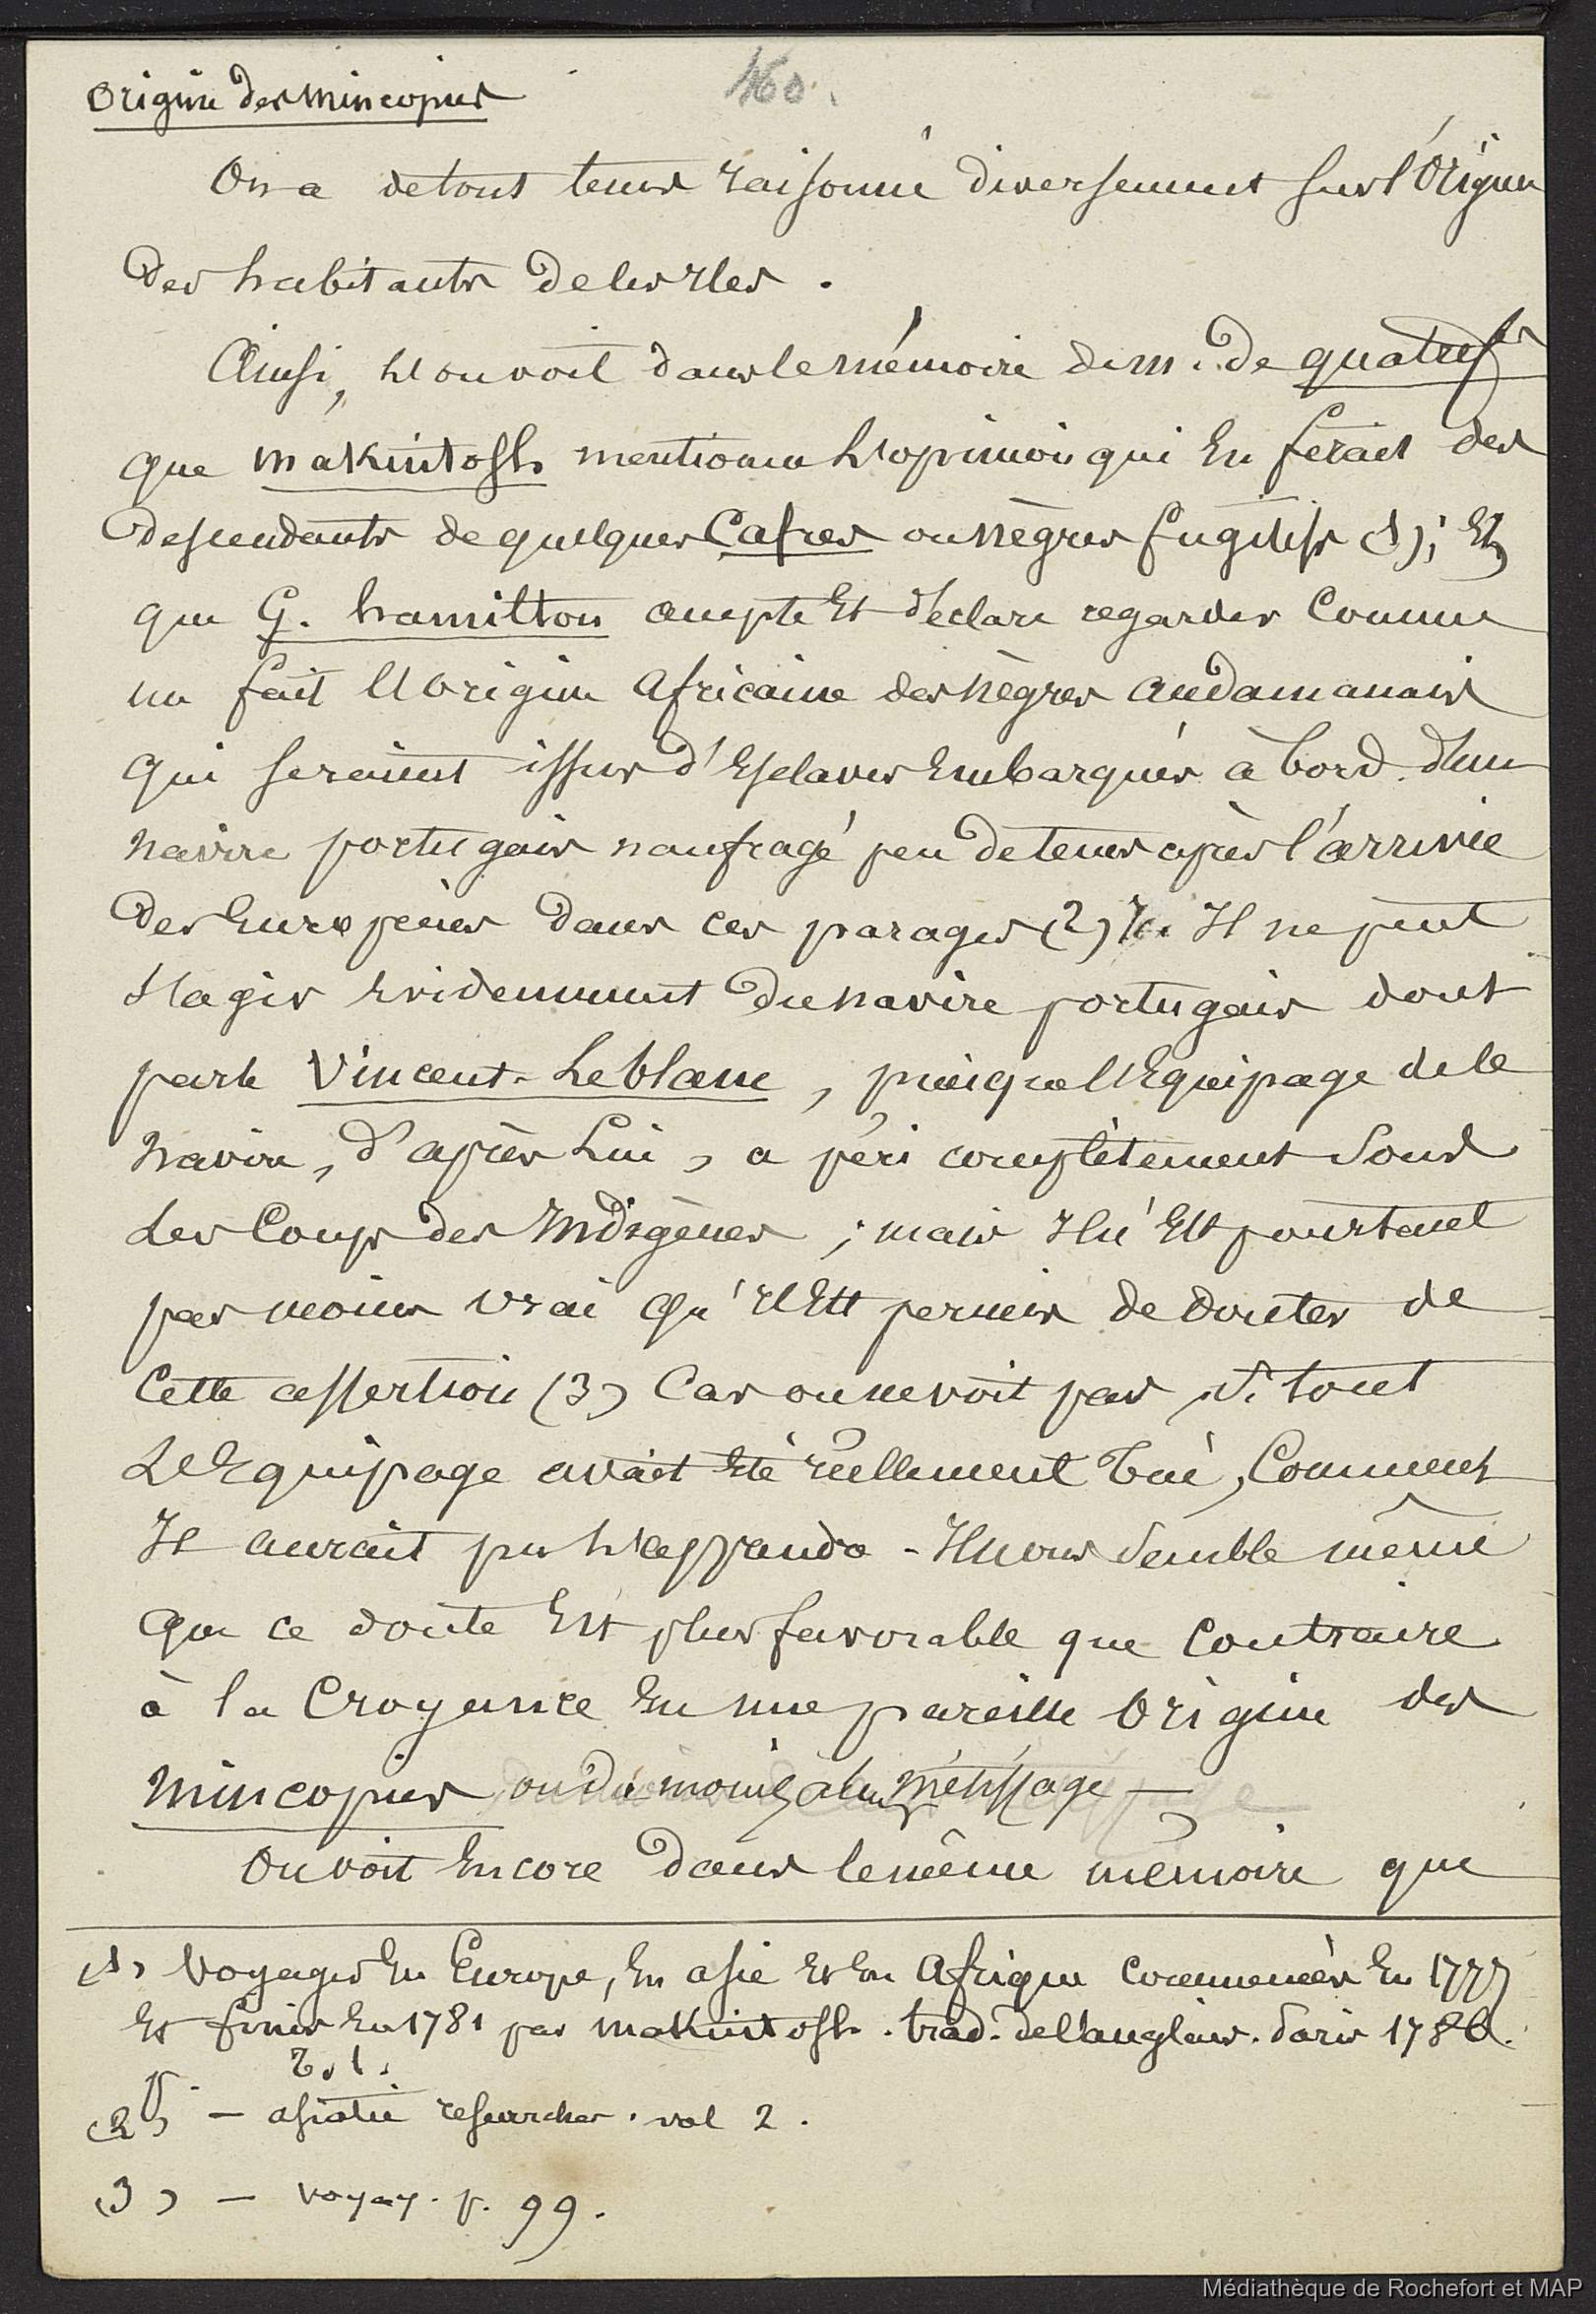 Origine des Mincopies
460.
On a de tout tems raisonné diversement sur l'Origine
Des habitants de ces Iles.
Ainsi, l'on voit dans le mémoire de m. De quatref
que Makintosh mentionne l'opinion qui En ferait des
Descendants de quelques Cafres ou nègres fugitifs (1); Et
que G. hamilton accepte Et déclare regarder Comme
un fait l'origine Africaine des nègres Andamanais
qui seraient issus d'Esclaves Embarqués à bord d'un
navire portugais naufragé peu de tems après l'arrivée
Des Européens Dans ces parages (2) Il ne peut
s'agir Evidemment Du navire portugais dont
parle Vincent-Leblanc, puisque l'Equipage de ce
navire, D'après Lui, a péri complètement Sous
Les Coups des Indigènes ; mais Il n'Est pourtant
pas moins vrai qu'il Est permis De Douter de
Cette assertion (3) Car on ne voit pas, si tout
L'Equipage avait Eté réellement Tué, Comment
Il aurait pu l'apprendre - Il nous Semble même
que ce doute Est plus favorable que Contraire
à la Croyance En une pareille Origine des
Mincopies ou du moins à leur métissage —
On voit Encore Dans le même mémoire que
(1) Voyages En Europe, En asie Et En Afrique Commencés En 1777
Et finis En 1781 par Makintosh. trad. de l'anglais. Paris 1786.
T. 1.
(2) — asiatic researches. vol 2.
(3) — voyag. p. 99.
Médiathèque de Rochefort et MAP